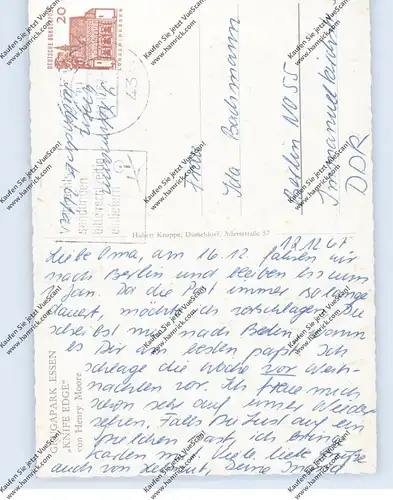 DEUTSCHE BUNDESPOST
20
LORSCH/HESSEN
43
Frau
Ida Bachmann
Berlin NO 55
Immanuelkirch
DDR
Hubert Knappe, Düsseldorf, Adersstraße 57
12.12.67
Liebe Oma, am 16.12. fahren wir
nach Berlin und bleiben bis zum
Jan. Da die Post immer so lange
dauert, möchte ich vorschlagen, Du
schreibst mir nach Berlin, wann
es Dir am besten paßt. Ich
schlage die Woche vor Weih-
nachten vor. Ich freue mich
schon sehr auf unser Wieder-
sehen. Falls Du Lust auf ein
hast, ich bringe
Karten mit. Viele liebe Grüße
auch von Deine
GRUGAPARK ESSEN
„KNIFE EDGE"
von Henry Moore
Kaufen Sie jetzt VueScan!
www.hamrick.com